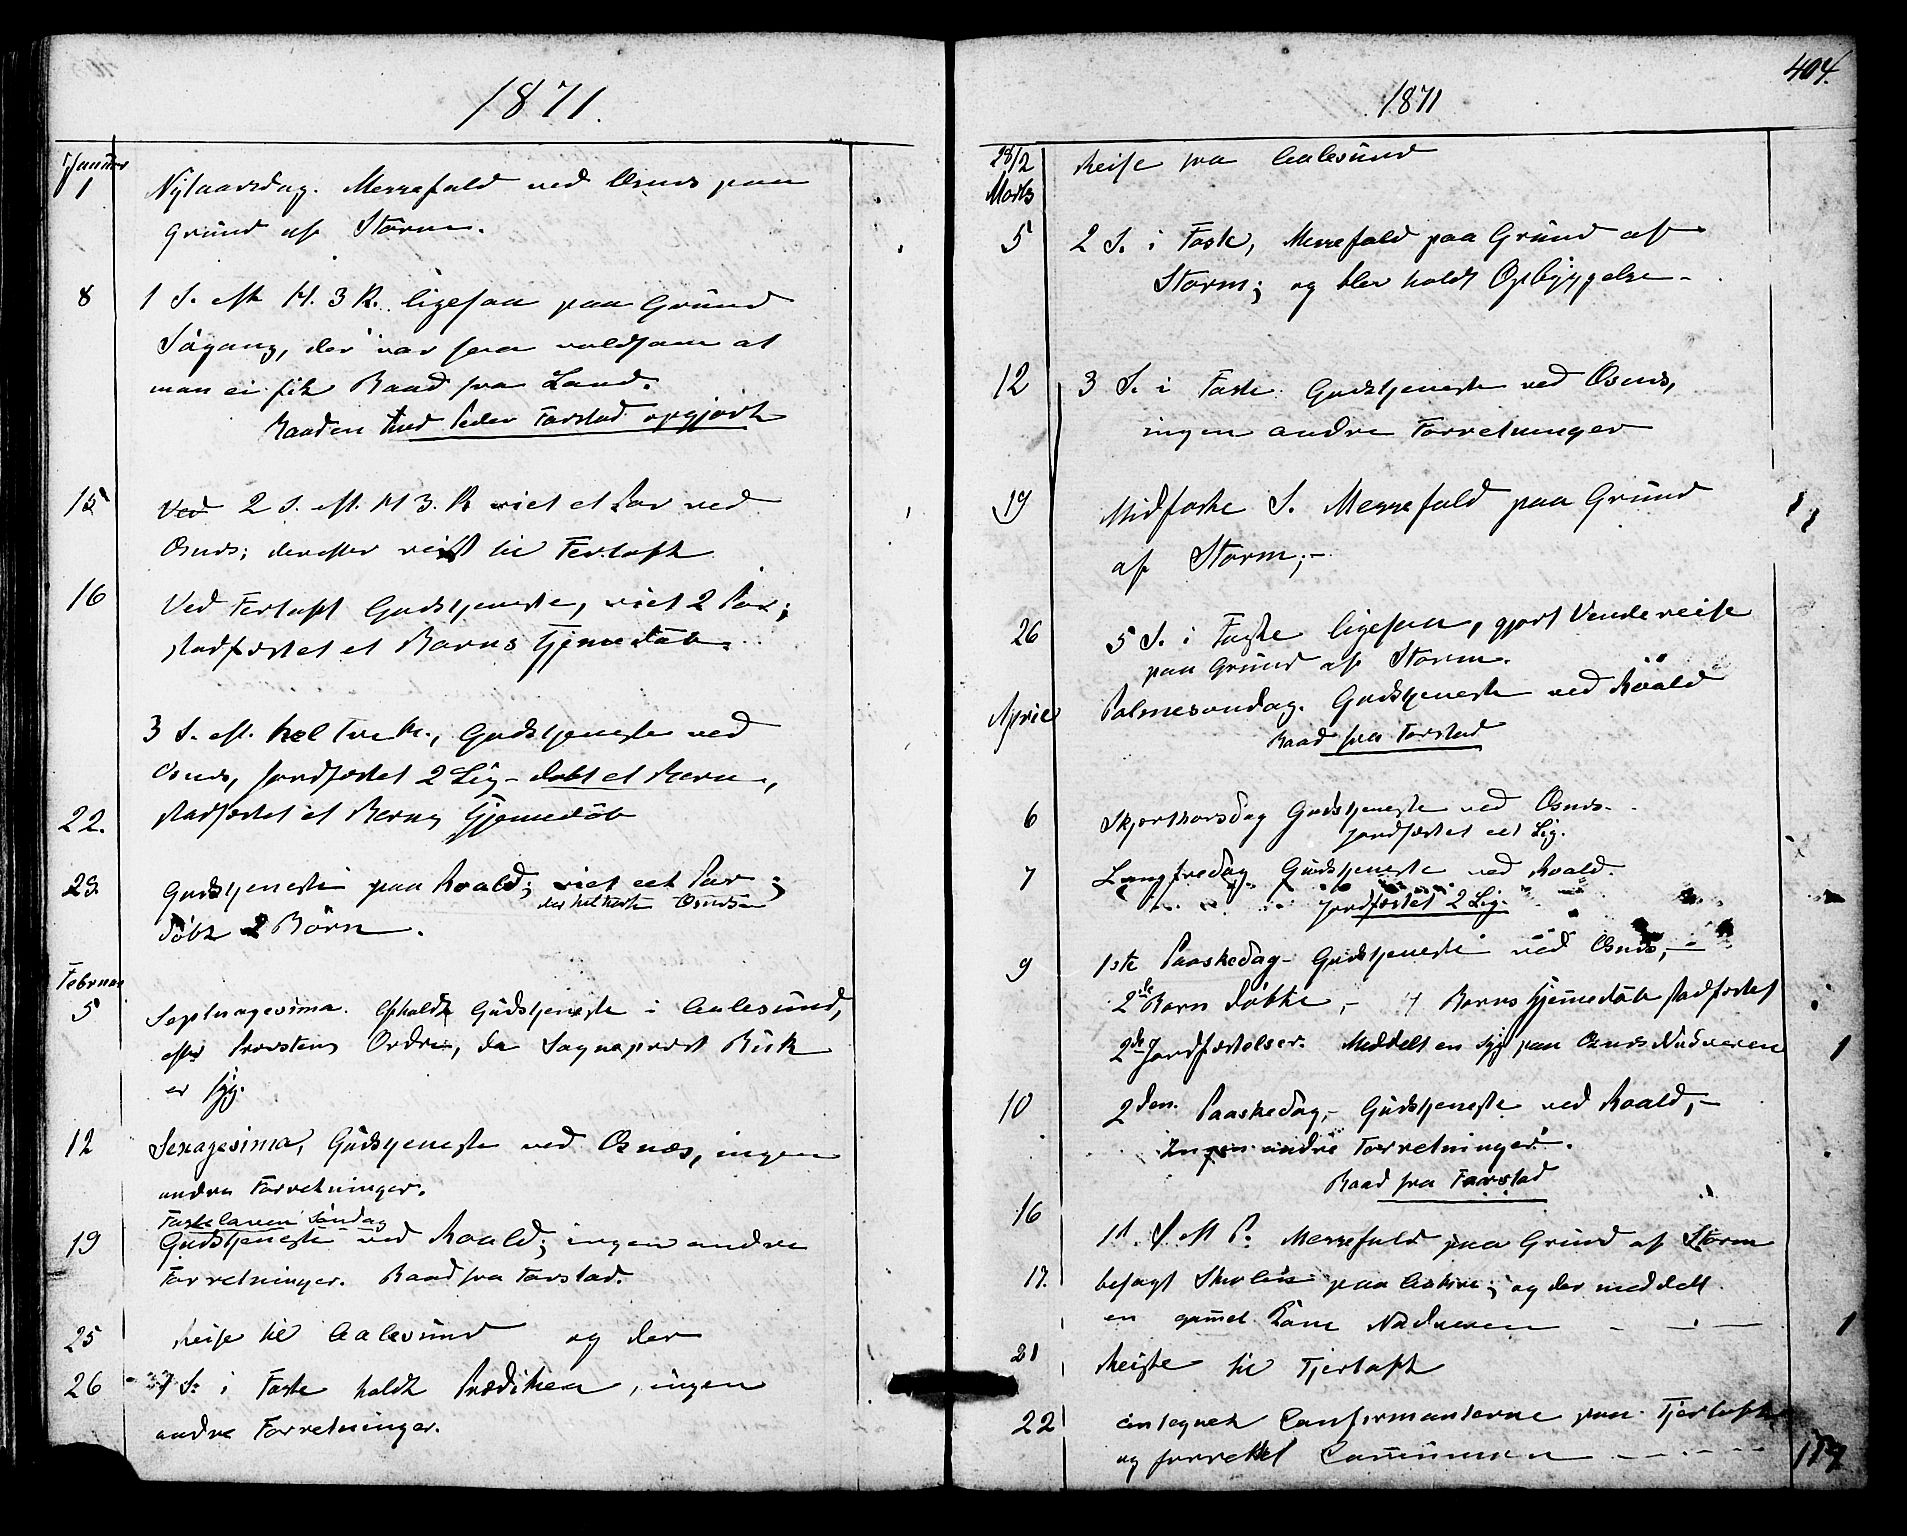 1871.
Januar
1 Nytaarsdag. Messefald ved Osnes paa
Grund af Storm.
8 1 S. eft H. 3 K. ligesaa paa Grund
Søgang, der var saa voldsom at
man ei fik Baad fra Land.
Baaden med Peder Farstad opgjort
15 Ved 2 S. eft. H 3. K viet et Par ved
Osnes; derefter reist til Fertoft
16 Ved Fertoft Gudstjeneste, viet 2 Par;
stadfæstet et Barns Hjemmedåb.
3 S. eft. hel tre K., Gudstjeneste ved
Osnes, Jordfæstet 2 Lig - døbt et Barn,
22. stadfæstet et Barns Hjemmedøb
29. Gudstjeneste paa Roald; viet eet Par;
døbt 2 Börn.
Februar
5 Septuagesima. Opholdt Gudstjeneste i Aalesund,
efter Provstens Ordre, da Sogneprest Buck
er syg.
12 Sexagesima, Gudstjeneste ved Osnæs, ingen
andre Forretninger.
Fastelavn Søndag
19 Gudstjeneste ved Roald; ingen andre
Forretninger. Baad fra Farstad.
25 Reise til Aalesund og der
26 1 S. i Faste holdt Prædiken, ingen
andre Forretninger.
404.
1871
28/2 Reise fra Aalesund
Marts
5 2 S. i Faste, Messefald paa Grund af
Storm; og blev holdt Opbyggelse -
12 3 S. i Faste Gudstjeneste ved Osnes,
ingen andre Forretninger
19 Midfaste S. Messefald paa Grund
af Storm; -
26 5 S. i Faste ligesaa, gjort Vendereise
paa Grund af Storm.
April Palmesondag. Gudstjeneste ved Roald
Baad fra Farstad
6 Skjærthorsdag Gudstjeneste ved Osnes.
Jordfæstet eet Lig.
7 Langfredag Gudstjeneste ved Roald.
jordfæstet 2 Lig.
9 1ste Paaskedag - Gudstjeneste ved Osnes, -
2de Barn døbte, - 4 Barns Hjemmedåb stadfæstet
2de Jordfæstelser. Meddelt en syg paa Osnes Nadveren 1
10 2den Paaskedag, - Gudstjeneste ved Roald, -
Ingen andre Forretninger.
Baad fra Faarstad
16 1st. S. M P. Messefald paa Grund af Storm
17. besøgt Skolen paa ; og der meddelt
en gammel Kone Nadveren - - - 1
21 Reiste til Fjertoft
22 antegnet Confirmanterne paa Fjertoft
og forrettet Communion - - - - -